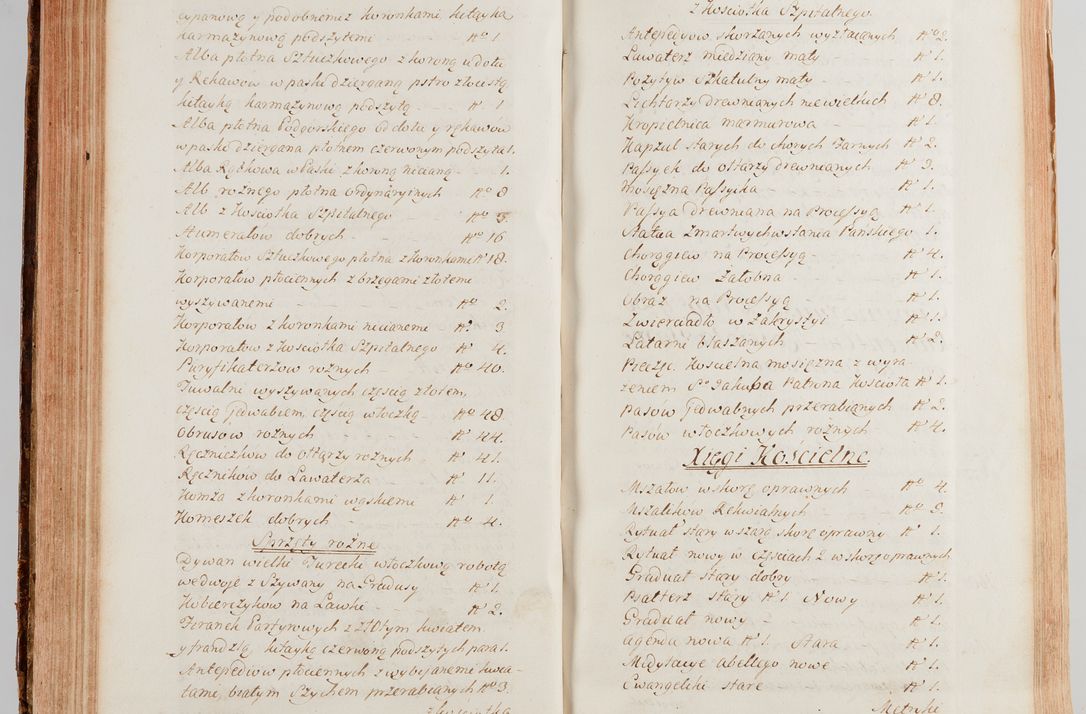 cypanową y podobnemiz koronkami kitayką
karmazynową podszytemi - No 1
Alba płotna Sztuczkowego z koroną u dołu
y Rękawów w paski dzierganą pstro złocistą
kitayką karmazynową podszytą - No 1
Alba płotna Podgorskiego od dołu y rękawów
w paski dziergana płotnem czerwonym podszyta 1.
Alba Rąbkowa w Paski z koroną nicianą - 1.
Alb rożnego płotna ordynaryinych No 8
Alb z Kosciołka Szpitalnego - No 5
Humerałow dobrych - No 16
Korporałow Sztuczkowego płotna z koronkami No 18.
Korporałow płociennych z brzegami złotemi
wyszywanemi - No 2.
Korporałow z koronkami nicianemi No 3
Korporałow z Kosciołka Szpitalnego No 4.
Puryfikaterzow rożnych - No 40.
Tuwalni wyszywanych częscią złotem,
częscią Jedwabiem, częscią włoczką - No 48
Obrusow rożnych - No 44.
Ręczniczkow do ołtarzy rożnych No 41.
Ręcznikow do Lawaterza No 11.
Komża z koronkami wąskiemi No 1.
Komeszek dobrych - No 4.
Sprzęty rożne
Dywan wielki Turecki włoczkową robotą
we dwoje z Szywany na Gradusy No 1.
Kobierczykow na Ławki - No 2.
Firanek Partyrowych z żółtym kwiatem
y frandzlą, kitayką czerwoną podszytych para 1.
Antepediow płociennych z wybijanemi kwia-
tami, białym Sztychem przerabianych No 3.
z kosciołka
z Kosciołka Szpitalnego.
Antepedyow skorzanych wyzłacanych No 2.
Lawaterz miedziany mały No 1.
Pozytyw Szkatulny mały No 1.
Lichtarzy drewnianych niewielkich No 8.
Kropielnica marmurowa - No 1.
Kapzul starych do chorych Farnych No 2.
Passyek do ołtarzy drewnianych No 3.
Mosiężna Passyika - No 1.
Passya drewniana na Processyą No 1.
Statua Zmartwychwstania Pańskiego 1.
Chorągiew na Processyą - No 4.
Chorągiew Załobna - No 1.
Obraz na Processyą - No 1.
Zwierciadło w Zakrystyi No 1.
Latarni blaszanych - No 2.
Pieczęc Koscielna mosiężna z wyra
żeniem So Jakuba Patrona Koscioła No 1.
Pasów Jedwabnych przerabianych No 2.
Pasów włoczkowych rożnych - No 4.
Xięgi Kościelne.
Mszałow w skorę oprawnych - No 4.
Mszalikow Rekwialnych - No 2.
Rytuał stary w szarą skorę oprawny No 1.
Rytuał nowy w częsciach 2 w skorę oprawnych
Graduał stary dobry - No 1.
Psałterz stary No 1. Nowy No 1.
Graduał nowy - No 1.
agenda nowa No 1. Stara No 1.
Medytacye abellego nowe No 1.
Ewangeliki stare No 1.
Metryki